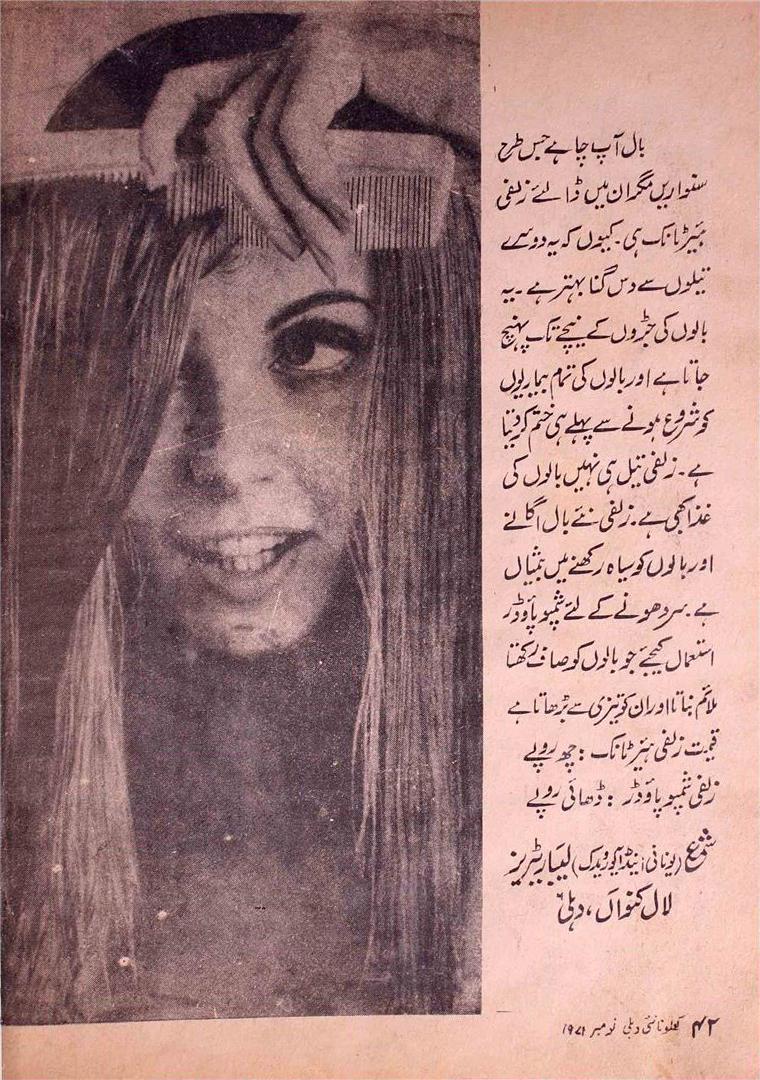 بال آپ چاہے جس طرح
سنواریں مگر ان میں ڈالئے زلفی
ہیئر ٹانک ہی۔ کیوں کہ یہ دوسرے
تیلوں سے دس گنا بہتر ہے۔ یہ
بالوں کی جڑوں کے نیچے تک پہنچ
جاتا ہے اور بالوں کی تمام بیماریوں
کو شروع ہونے سے پہلے ہی ختم کر دیتا
ہے۔ زلفی تیل ہی نہیں بالوں کی
غذا بھی ہے۔ زلفی نئے بال اگانے
اور بالوں کو سیاہ رکھنے میں بیمثال
ہے۔ سر دھونے کے لئے شمپو پاؤڈر
استعمال کیجئے جو بالوں کو صاف رکھتا
ملائم بناتا اور ان کو تیزی سے بڑھاتا ہے
قیمت زلفی ہیئر ٹانک : چھ روپے
زلفی شمپو پاؤڈر : ڈھائی روپے
شمع (یونانی اینڈ آیورویدک) لیباریٹریز
لال کنواں، دہلی
۴۲ کھلونا نئی دہلی نومبر ۱۹۷۱